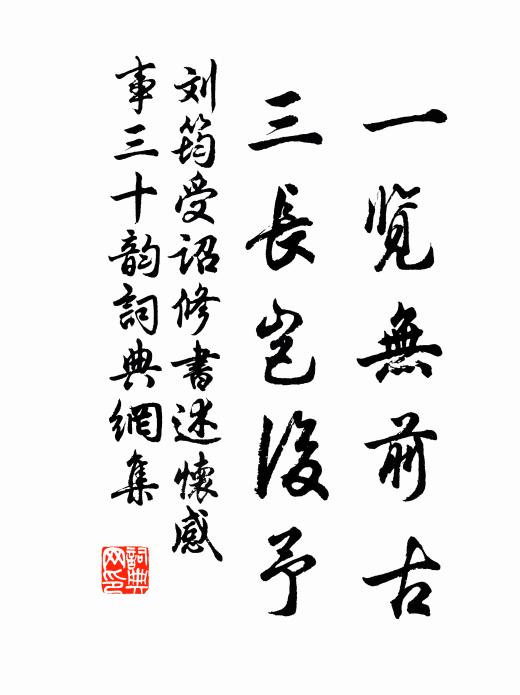 一览無前古
三長豈後予
刘筠受詔修書述懷感
事三十韵詞典網集
詞典
网印